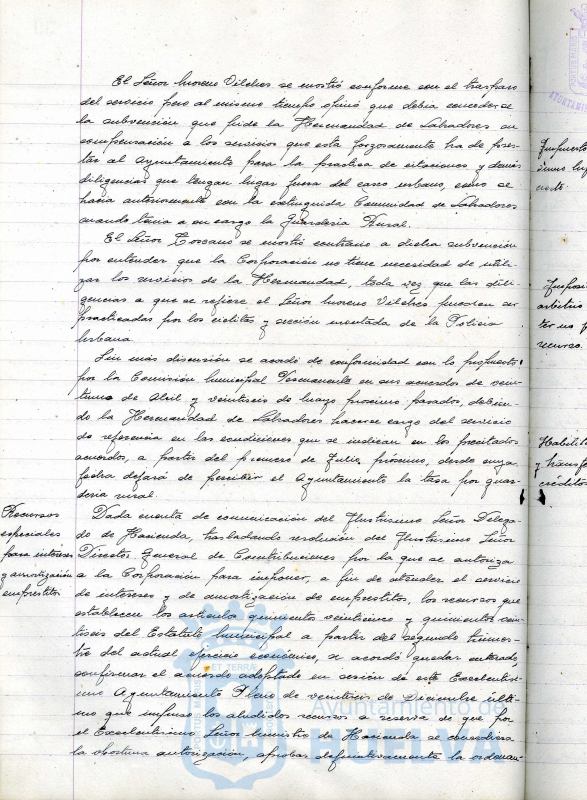 El Señor Moreno Vilches se mostró conforme con el traspaso
del servicio pero al mismo tiempo opinó que debia concederse
la subvención que pide la Hermandad de Labradores en
compensación a los servicios que esta forzosamente ha de pres-
tar al Ayuntamiento para la practica de citaciones y demás
diligencias que tengan lugar fuera del casco urbano, como se
hacia anteriormente con la extinguida Comunidad de Labradores
cuando tenia a su cargo la Guarderia Rural.
El Señor Toscano se mostró contrario a dicha subvención
por entender que la Corporación no tiene necesidad de utili-
zar los servicios de la Hermandad, toda vez que las dili-
gencias a que se refiere el Señor Moreno Vilches pueden ser
practicadas por los ciclistas y sección montada de la Policia
Urbana.
Sin más discusión se acordó de conformidad con lo propuesto
por la Comisión Municipal Permanente en sus acuerdos de vein-
tiuno de Abril y veintiseis de Mayo proximo pasados, debien-
do la Hermandad de Labradores hacerse cargo del servicio
de referencia en las condiciones que se indican en los precitados
acuerdos, a partir del primero de Julio próximo, desde cuya
fecha dejará de percibir el Ayuntamiento la tasa por guar-
deria rural.
Recursos
especiales
para intereses
y amortización
emprestitos
Dada cuenta de comunicación del Ilustrisimo Señor Delega-
do de Hacienda, trasladando resolución del Ilustrisimo Señor
Director General de Contribuciones por la que se autoriza
a la Corporación para imponer, a fin de atender el servicio
de intereses y de amortización de emprestitos, los recursos que
establecen los articulos quinientos veinticinco y quinientos vein-
tiseis del Estatuto Municipal a partir del segundo trimes-
tre del actual ejercicio económico, se acordó quedar enterado,
confirmar el acuerdo adoptado en sesión de este Excelentisi-
mo Ayuntamiento Pleno de de Diciembre últi-
mo que impuso los aludidos recursos a reserva de que por
el Excelentisimo Señor Ministro de Hacienda se concediera
la oportuna autorización, aprobar definitivamente la ordenan-
Ayuntamiento de
HUELVA
ET TERRA
cretó
arbitrios
recurso.
créditos